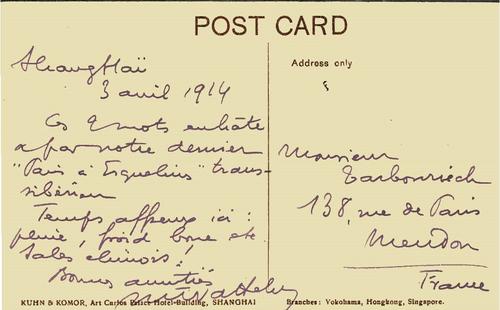 POST CARD
Shanghaï
3 avril 1914
Ces 2 mots en hâte
par notre dernier
"Paris à" trans-
sibérien
Temps affreux ici :
pluie, froid, boue etc
Sales chinois !
Bonnes amitiés
Address only
Monsieur
Tarbouriech
138, rue de Paris
Meudon
France
KUHN & KOMOR, Art Curios Palace Hotel-Building, SHANGHAI
Branches: Yokohama, Hongkong, Singapore.